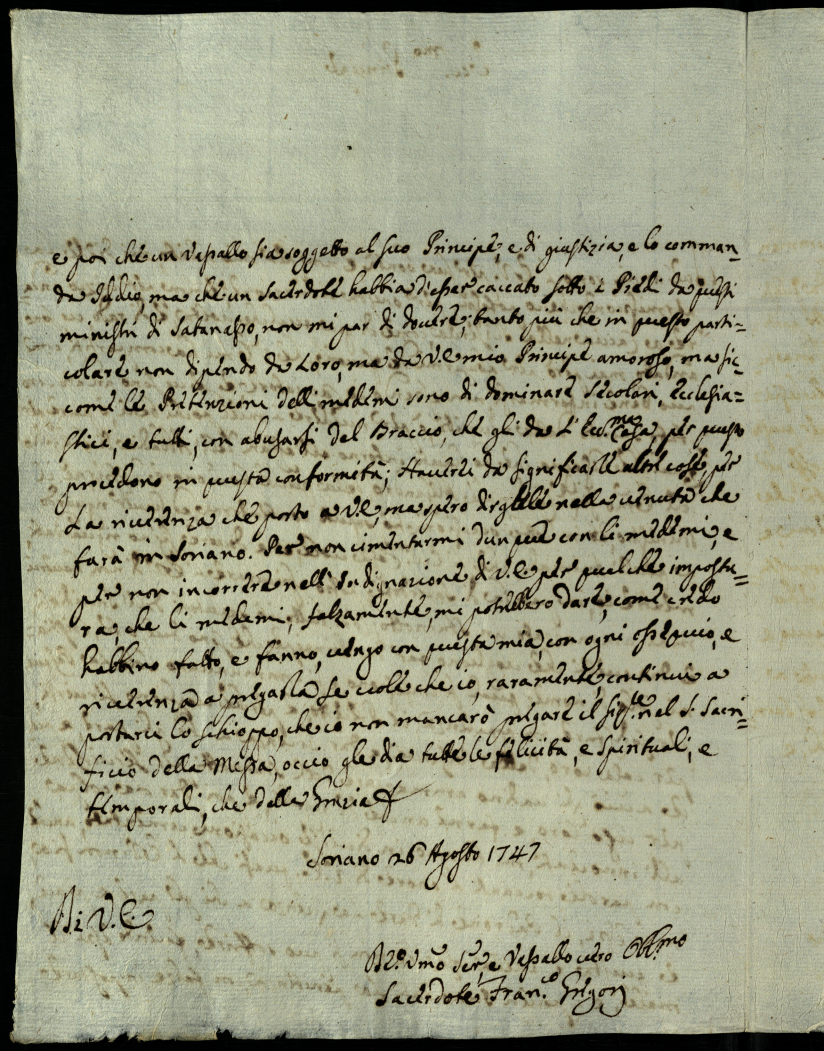 e poi che un Vassallo sia soggetto al suo Principe, e di giustizia, e lo comman=
da Iddio, ma che un Sacerdote habbia d'esser caccato sotto i Piedi da questi
ministri di Satanasso, non mi par di dovere; tanto più che in questo parti=
colare non dipendo da Loro, ma da V.E. mio Principe amoroso, ma sic=
come le Pretenzioni delli medemi sono di dominare Secolari, Ecclesia=
stici, e tutti, con abusarsi del Braccio, che gli da L'Ecc.ma Casa, per questo
procedono in questa conformità; Haverei da significarle altre cose, per
La riverenza che porto a V.E., ma spero dirgliele nella venuta che
farà in Soriano. Per non cimentarmi dunque con li medemi, e
per non incorrere nell'Indignazione di V.E. per qualche impostu=
ra, che li medemi, falzamente, mi potrebbero dare, come credo
habbino fatto, e fanno, vengo con questa mia, con ogni ossequio, e
riverenza a pregarla se vuole che io, raramente, continui a
portarci lo schioppo, che io non mancarò pregare il Sig.re nel S. Sacri=
ficio della Messa, accio gle dia tutte le felicità, e Spirituali, e
temporali, che della Grazia
Soriano 26 Agosto 1747
Di V.E.
Vmo Ser.e e Vassallo vero Obl.mo
Sacerdote Fran.co Gregorj